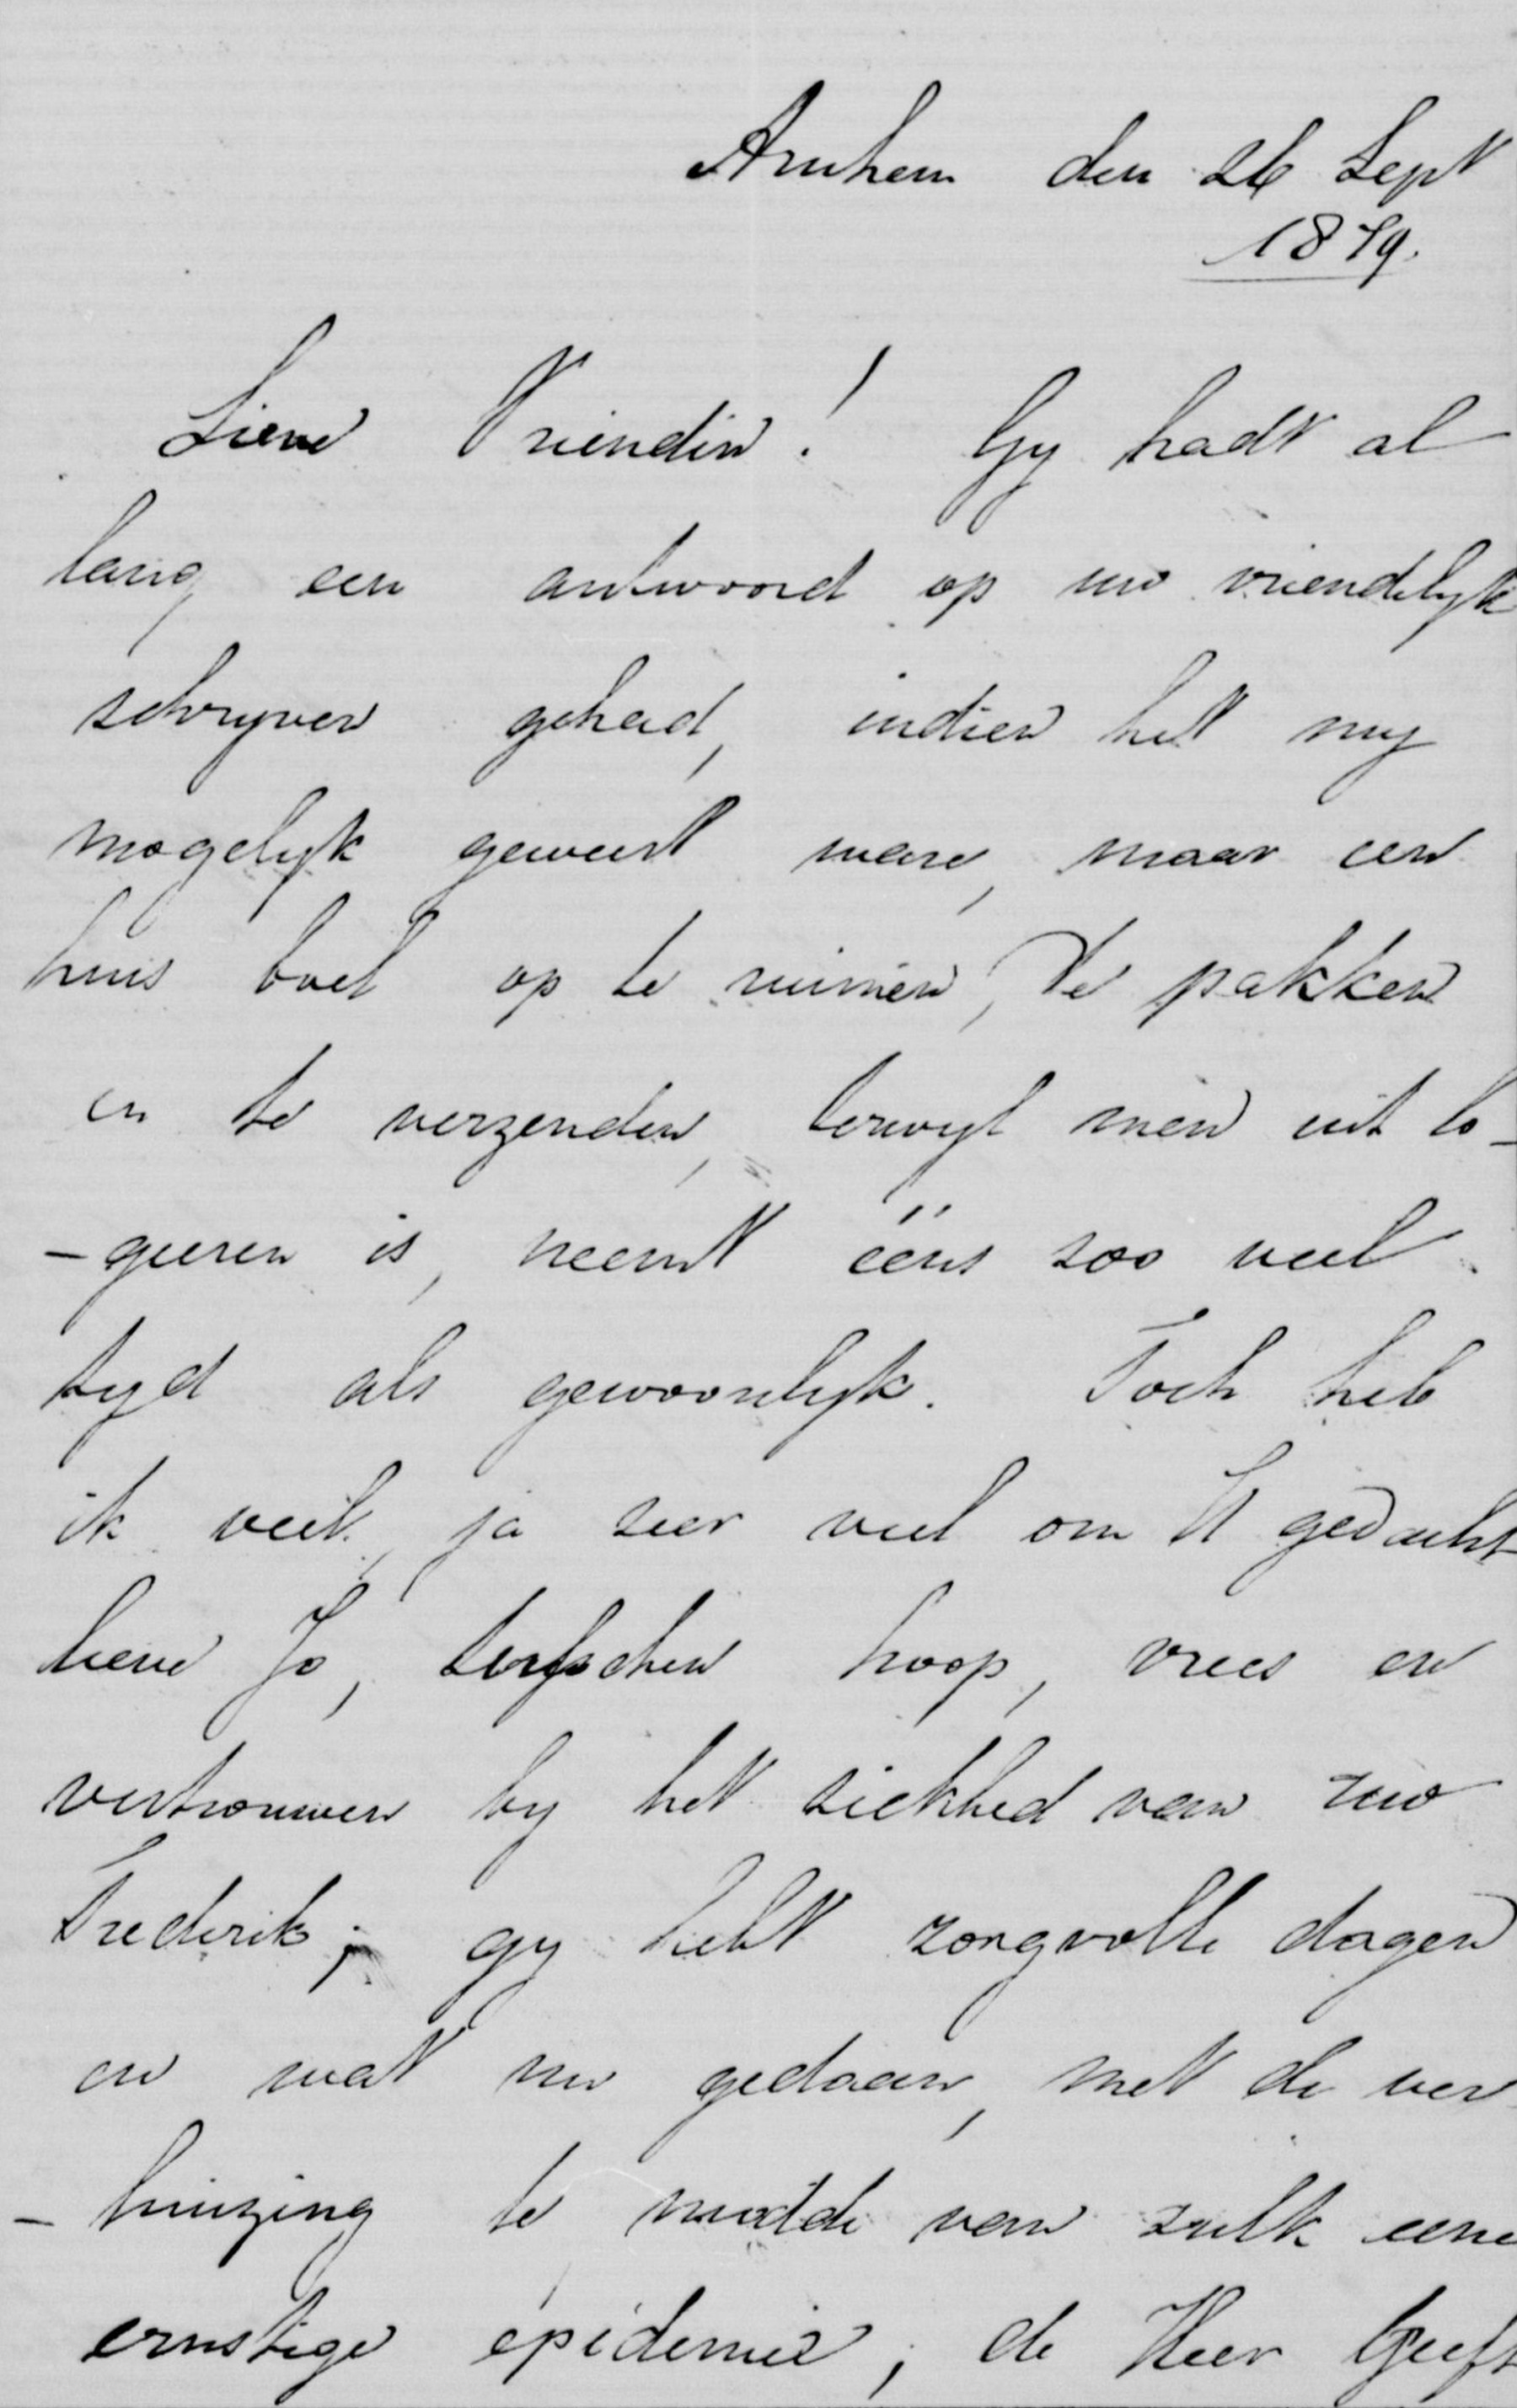 Arnhem den 26 Sept
1879.
Lieve Vriendin! Gy hadt al
lang een antwoord op uw vriendelyk
schryven gehad, indien het my
mogelyk geweest ware, maar een
huis boel op te ruimen, te pakken
en te verzenden, terwyl men uit lo-
-geeren is, neemt ééns zoo veel
tyd als gewoonlyk. Toch heb
ik veel, ja zeer veel om U gedacht
lieve Jo, tusschen hoop, vrees en
vertrouwen by het ziekbed van uw
Frederik; gy hebt zorgvolle dagen
en wat nu gedaan, met de ver
-huizing te midde van zulk eene
ernstige epidemie; de Heer Geeft